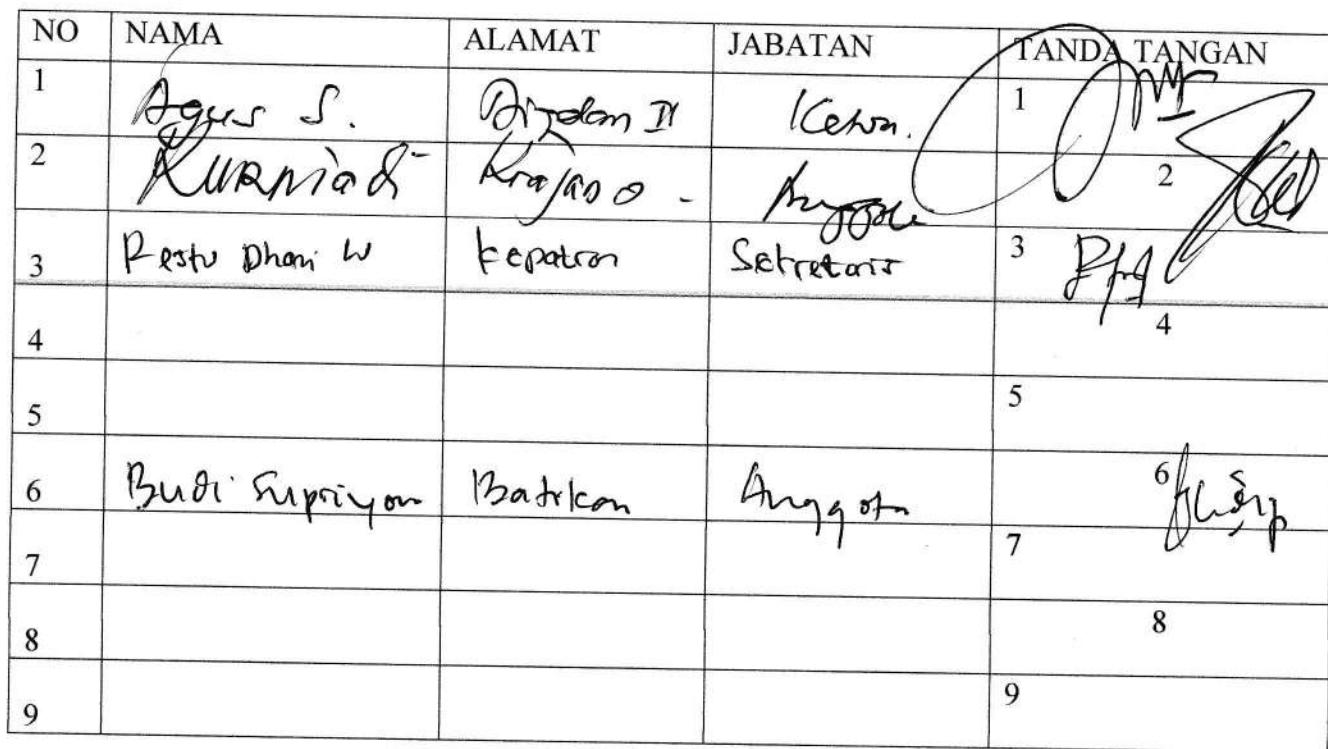 NO NAMA ALAMAT JABATAN TANDA TANGAN
1 Agus S. Ketua. 1
2 KURNiadi Anggota 2
3 Restu Dhani W Kepatran Sekretaris 3
4 4
5 5
6 Budi Supriyon Batikan Anggota 6
7 7
8 8
9 9